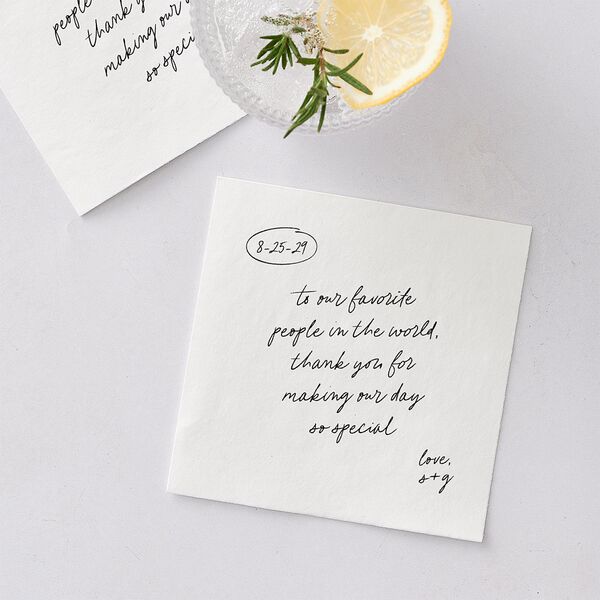 people
thank you
making our
so special
8-25-29
to our favorite
people in the world,
thank you for
making our day
so special
love,
s+g